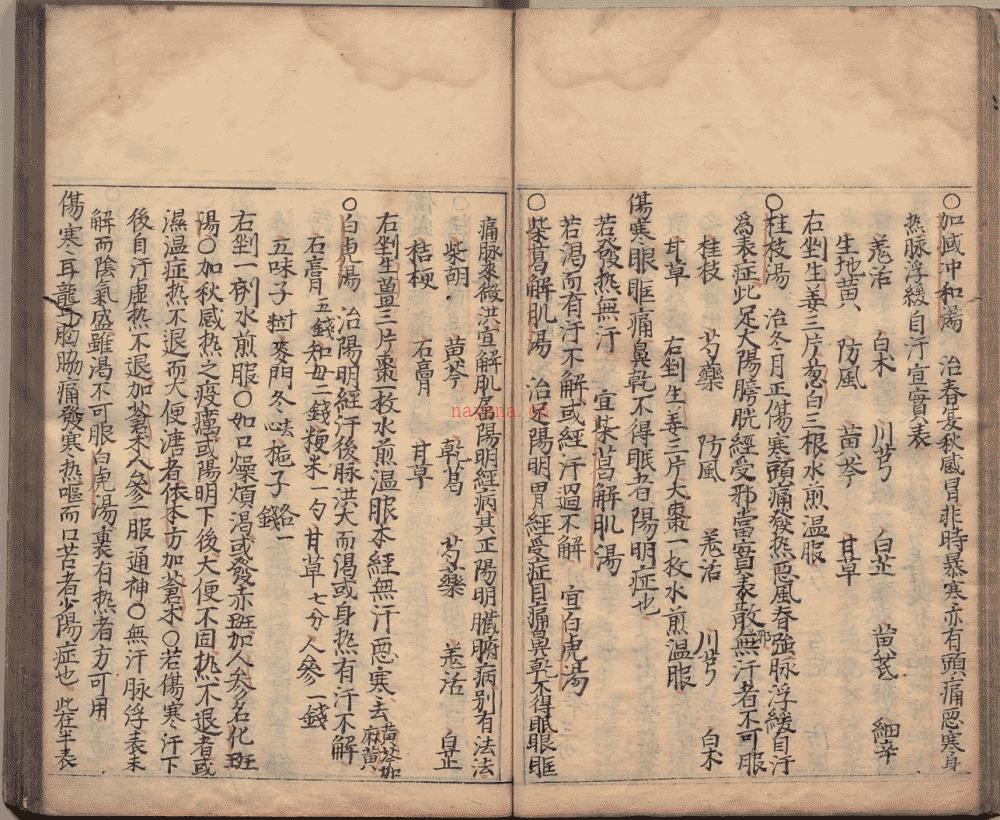 ○加減冲和湯　治春夏秋感冒非時暴寒亦有頭痛惡寒身
熱脉浮緩自汗宜實表
羗活　白术　川芎　白芷　黄芪　細辛
生地黄　防風　黄芩　甘草
右剉生姜三片葱白三根水煎温服
○桂枝湯　治冬月正傷寒頭痛發热惡風脊強脉浮緩自汗
爲表症此足太陽膀胱經受邪當實表散邪無汗者不可服
桂枝　芍藥　防風　羗活　川芎　白术
甘草　右剉生姜三片大棗一枚水煎温服
傷寒眼眶痛鼻乾不得眠者陽明症也
若發熱無汗　宜柴葛解肌湯
若渴而有汗不解或經汗過不解　宜白虎湯
○柴葛解肌湯　治足陽明胃經受症目痛鼻乾不得眠眼眶
痛脉來微洪宜解肌属陽明經病其正陽明臓腑病别有法法
○柴胡　黄芩　乾葛　芍藥　羗活　白芷
桔梗　石膏　甘草
右剉生薑三片棗一枚水煎温服本經無汗惡寒去黄芩加麻黄
○白虎湯　治陽明經汗後脉洪大而渴或身热有汗不解
石膏五錢知母二錢粳米一勺甘草七分人參一錢
五味子 粒麥門冬 去心 梔子各一錢
右剉一劑水煎服○如口燥煩渴或發赤班加人參名化班
湯○加秋感热之疫癘或陽明下後大便不固热不退者或
濕温症热不退而大便溏者依本方加蒼术○若傷寒汗下
後自汗虚热不退加蒼术人參一服通神○無汗脉浮表未
解而陰氣盛雖渴不可服白虎湯裏有热者方可用
傷寒耳聾胸脇痛發寒热嘔而口苦者少陽症也 此在半表
naxuna.cn